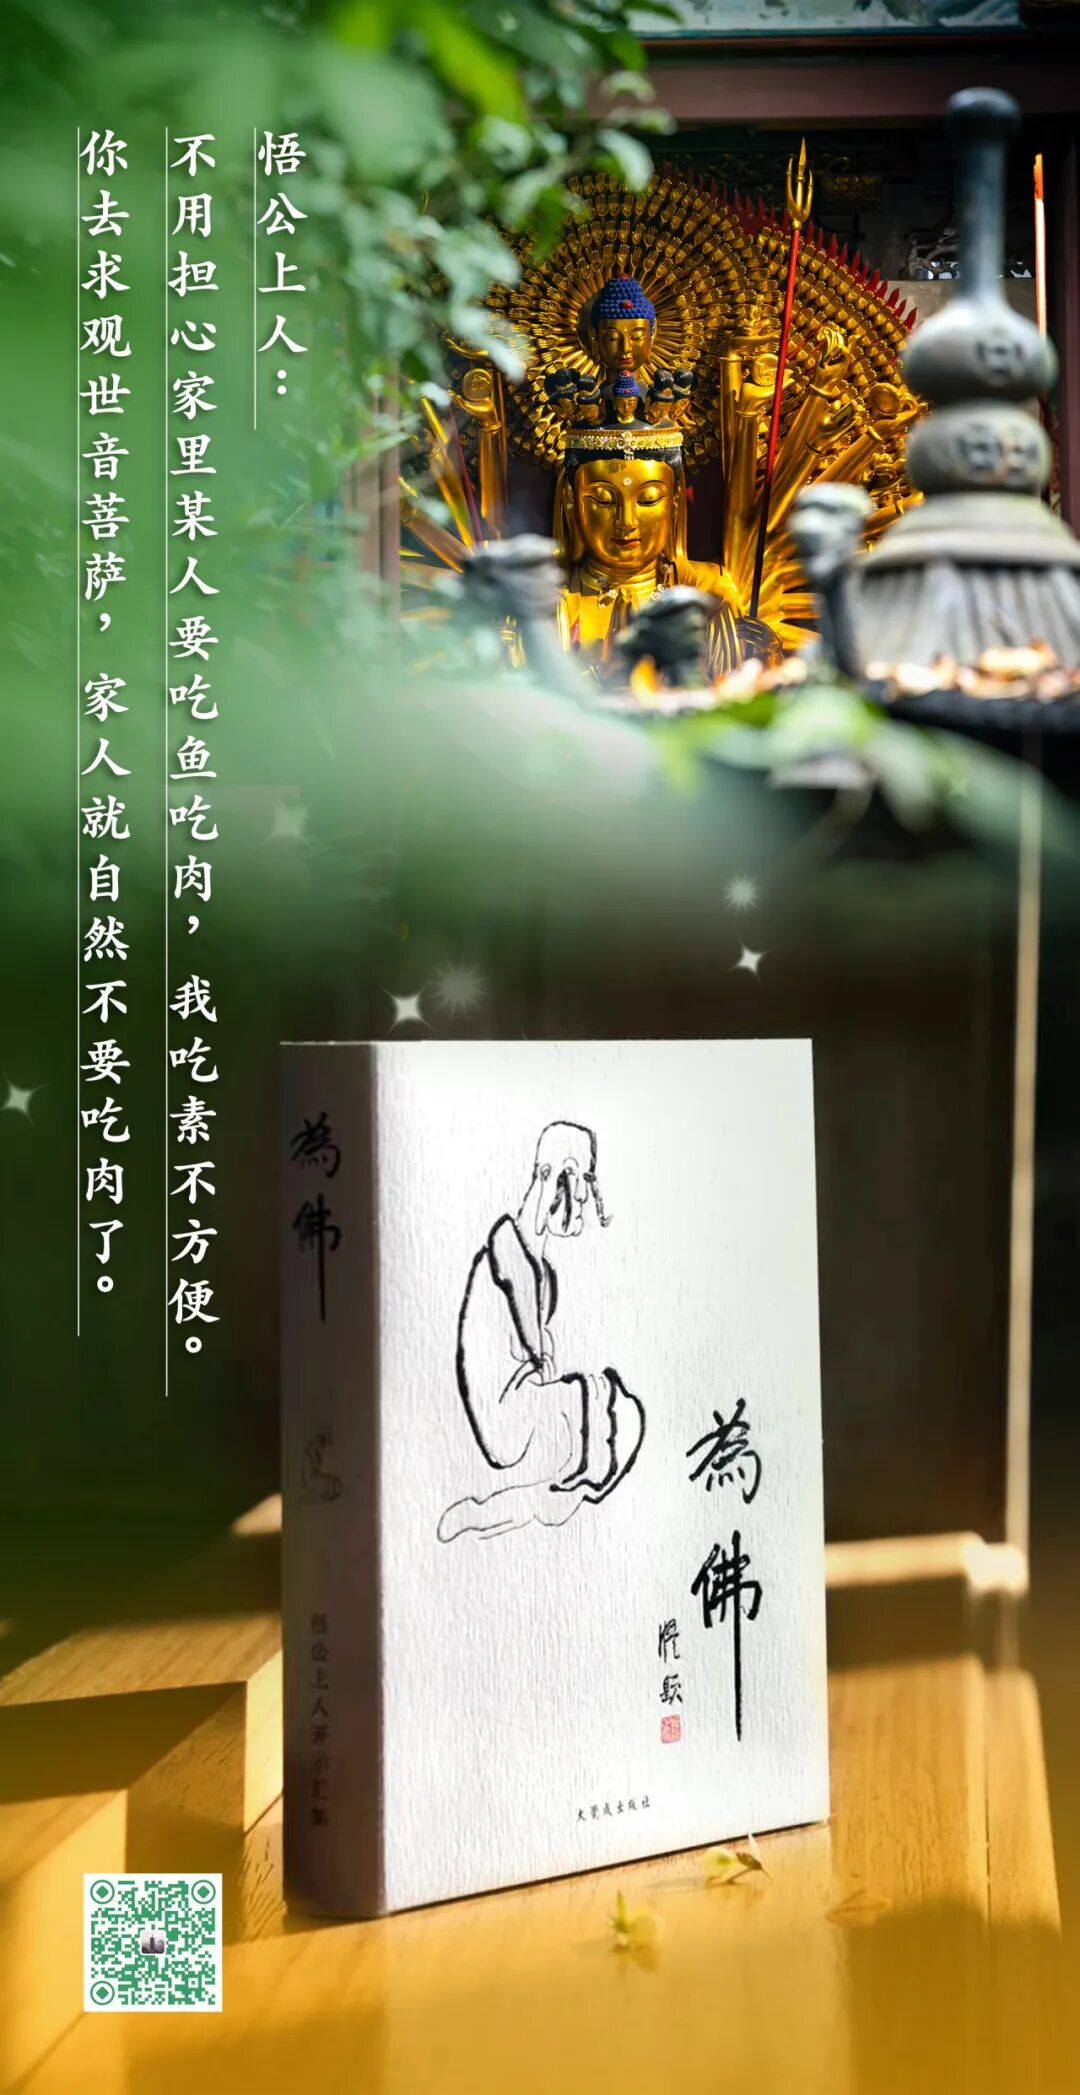 悟公上人：
不用担心家里某人要吃鱼吃肉，我吃素不方便。
你去求观世音菩萨，家人就自然不要吃肉了。
為佛
悟公上人开示汇集
為佛
大觉成出版社